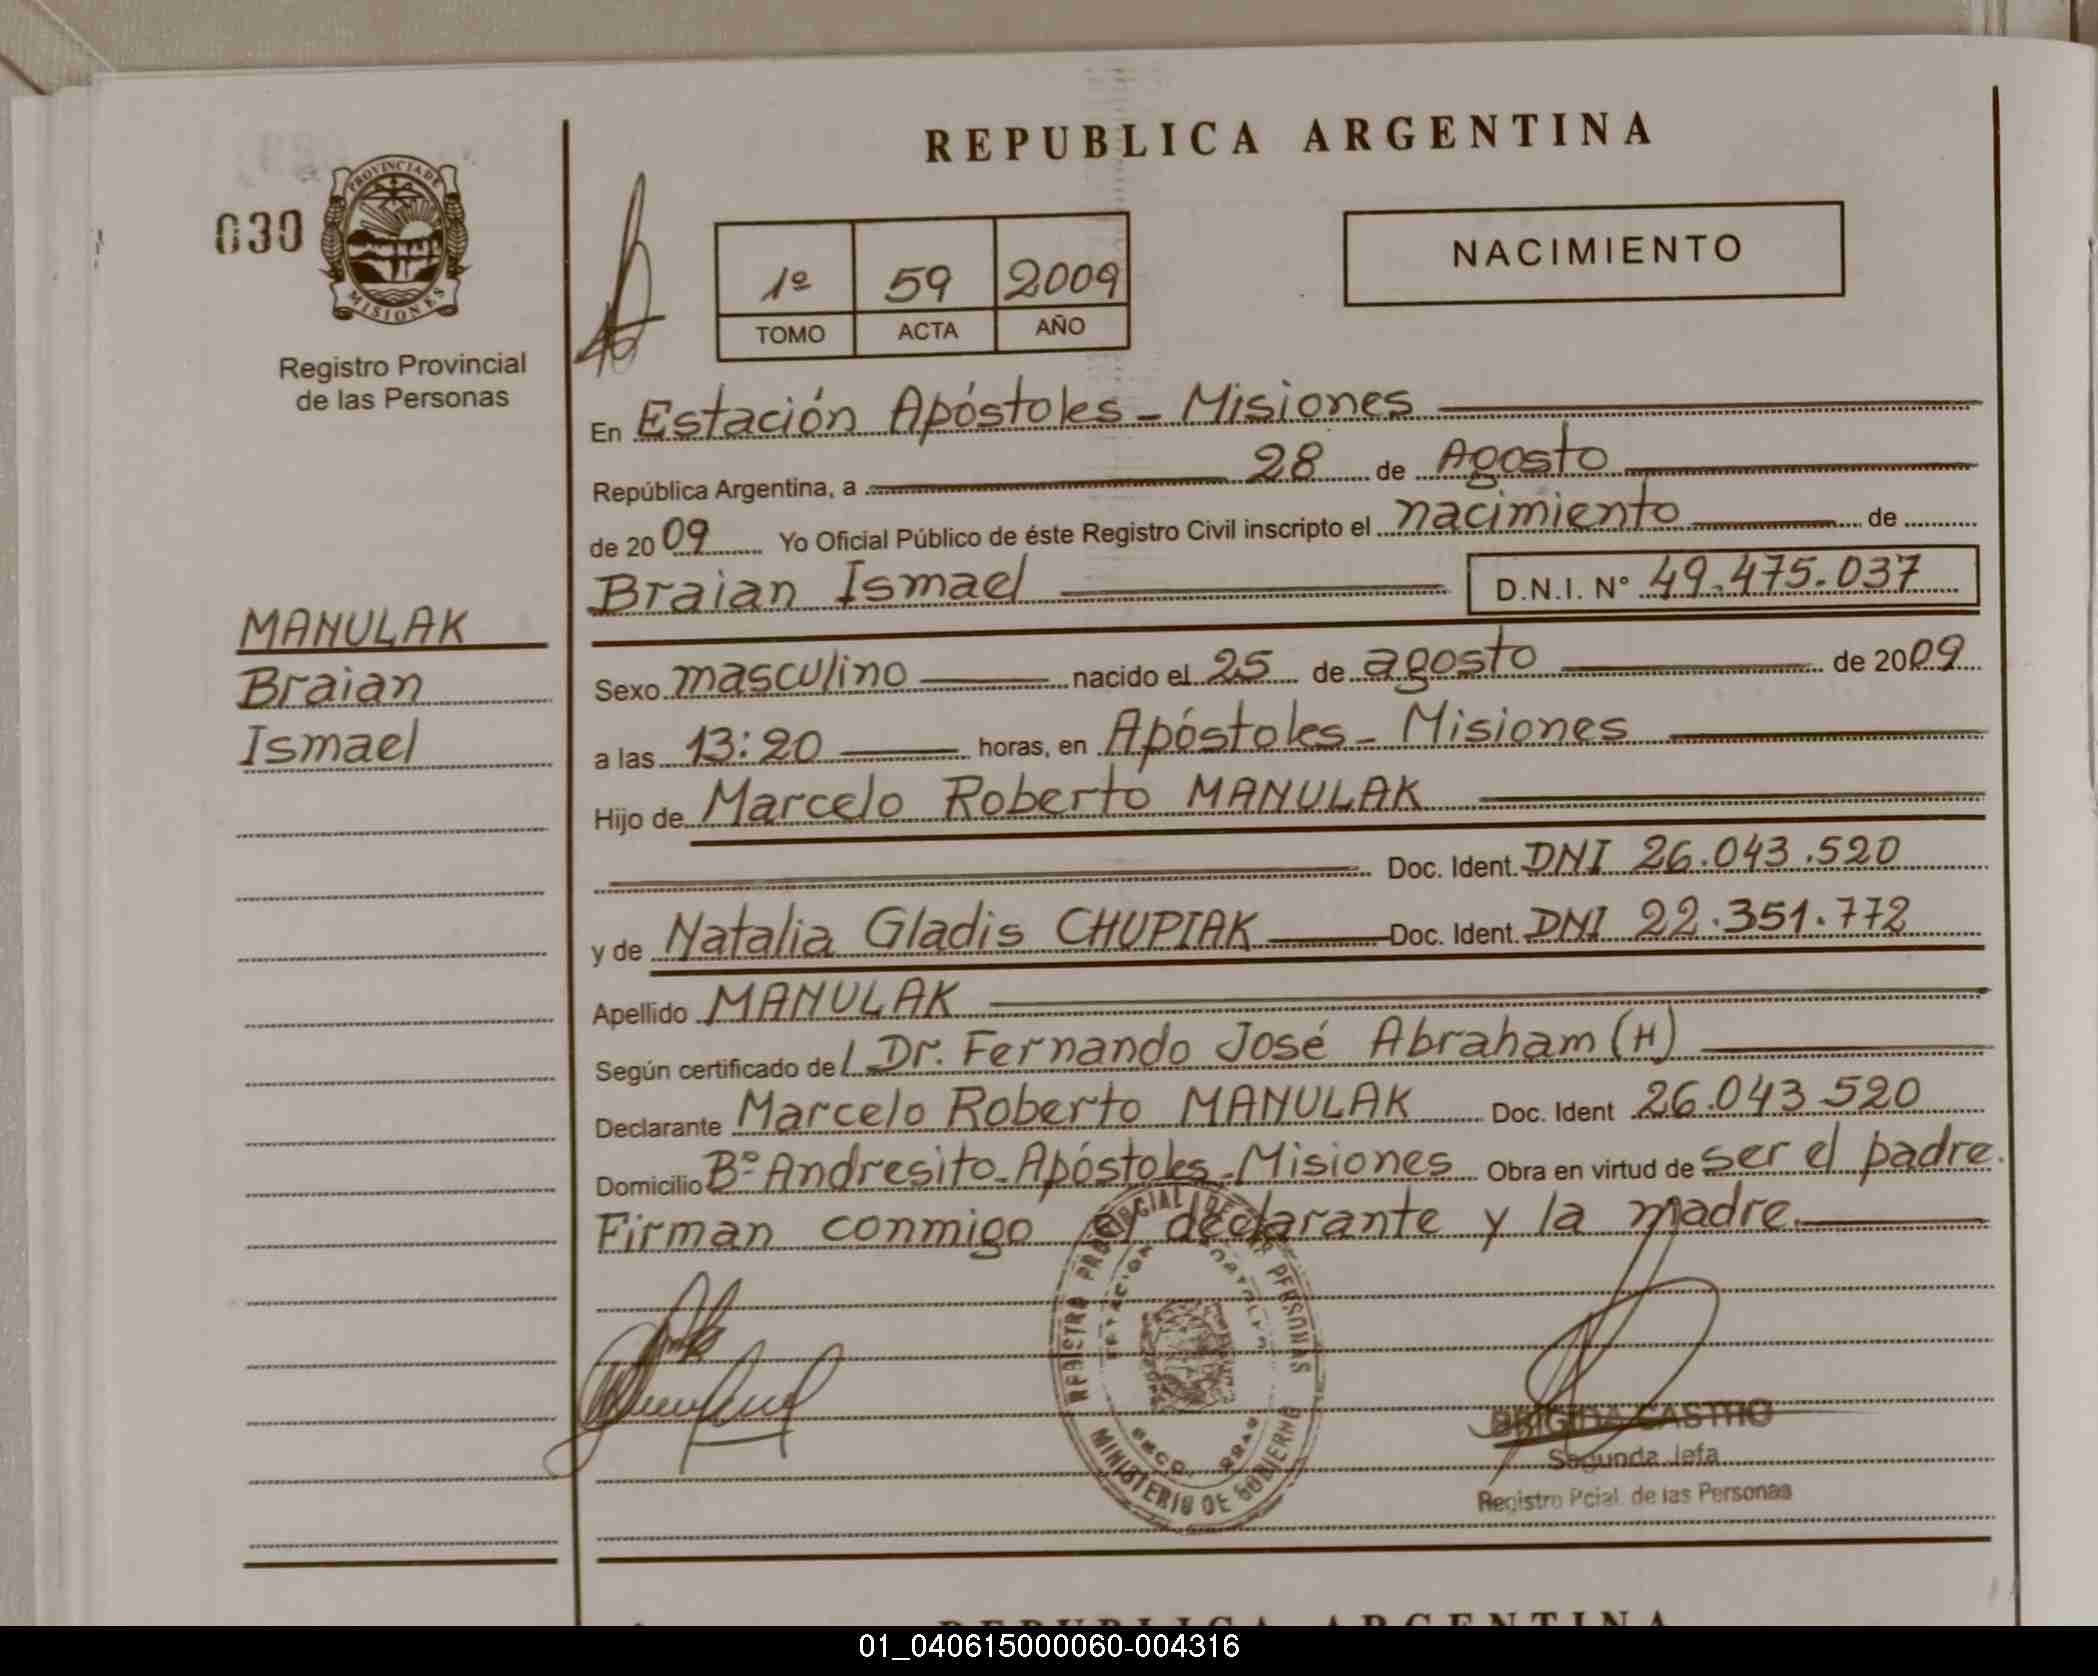 REPUBLICA ARGENTINA
030
PROVINCIA DE
MISIONES
Registro Provincial
de las Personas
1º 59 2009
TOMO ACTA AÑO
NACIMIENTO
En Estación Apóstoles - Misiones
República Argentina, a 28 de Agosto
de 2009 Yo Oficial Público de éste Registro Civil inscripto el nacimiento de
Braian Ismael D.N.I. Nº 49.475.037
MANULAK
Braian
Ismael
Sexo masculino nacido el 25 de agosto de 2009
a las 13:20 horas, en Apóstoles - Misiones
Hijo de Marcelo Roberto MANULAK
Doc. Ident. DNI 26.043.520
y de Natalia Gladis CHUPIAK Doc. Ident. DNI 22.351.772
Apellido MANULAK
Según certificado del Dr. Fernando José Abraham (H)
Declarante Marcelo Roberto MANULAK Doc. Ident 26.043.520
Domicilio Bº Andresito - Apóstoles - Misiones Obra en virtud de ser el padre.
Firman conmigo el declarante y la madre.
REGISTRO PROVINCIAL DE LAS PERSONAS
MINISTERIO DE GOBIERNO
BRIGIDA CASTRO
Segunda Jefa
Registro Pcial. de las Personas
REPUBLICA ARGENTINA
01_040615000060-004316